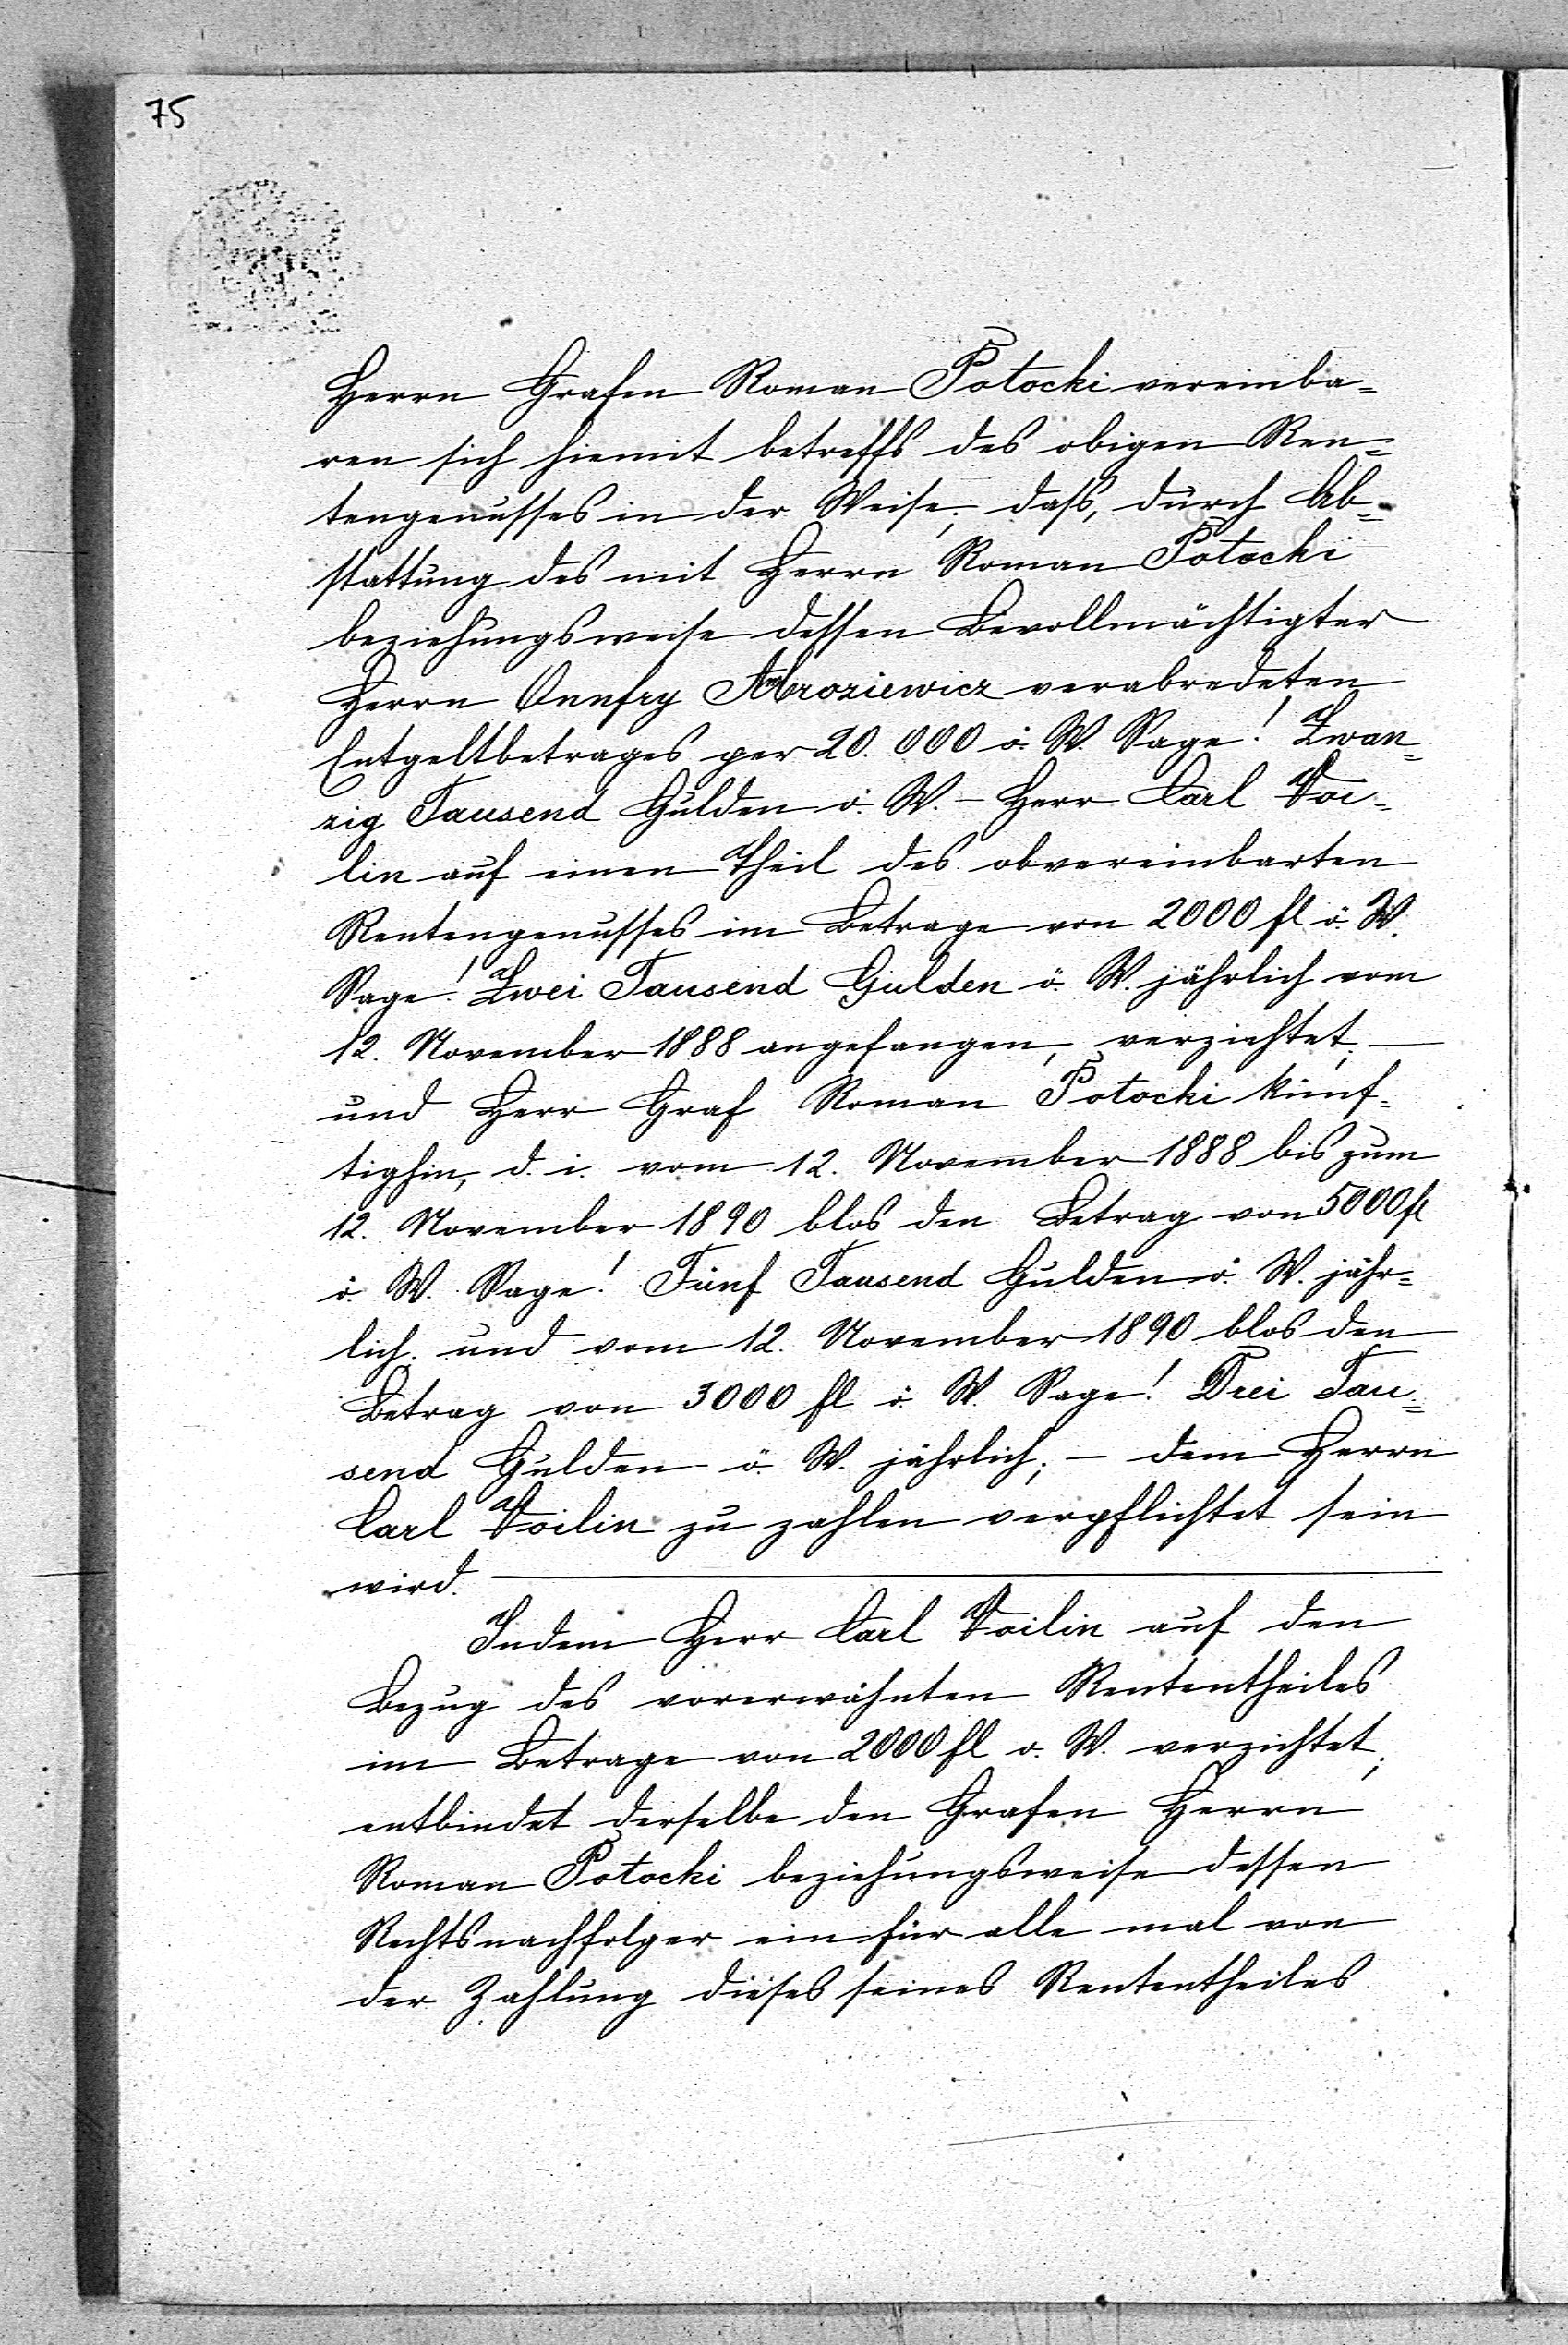 75
Herrn Grafen Roman Potocki vereinba=
ren sich hiemit betreffs des obigen Ren=
tengenusses in der Weise; dass, durch Ab=
stattung des mit Herrn Roman Potocki
beziehungsweise dessen Bevollmächtigter
Herrn Onnfry Ambroziewicz verabredeten
Entgeltbetrages per 20.000 ö. W. Sage! Zwan=
zig Tausend Gulden ö. W. – Herr Carl Voi=
lin auf einen Theil des obvereinbarten
Rentengenusses im Betrage von 2000 fl ö. W.
Sage! Zwei Tausend Gulden ö. W. jährlich vom
12. November 1888 angefangen, verzichtet; —
und Herr Graf Roman Potocki künf=
tighin, d. i. vom 12. November 1888 bis zum
12. November 1890 blos den Betrag von 5000 fl
ö. W. Sage! Fünf Tausend Gulden ö. W. jähr=
lich. und vom 12. November 1890 blos den
Betrag von 3000 fl ö. W. Sage! Drei Tau=
send Gulden ö. W. jährlich; – dem Herrn
Carl Voilin zu zahlen verpflichtet sein
wird.
Indem Herr Carl Voilin auf den
Bezug des vorerwähnten Rententheiles
im Betrage von 2000 fl ö. W. verzichtet;
entbindet derselbe den Grafen Herrn
Roman Potocki beziehungsweise dessen
Rechtsnachfolger ein für alle mal von
der Zahlung dieses seines Rententheiles